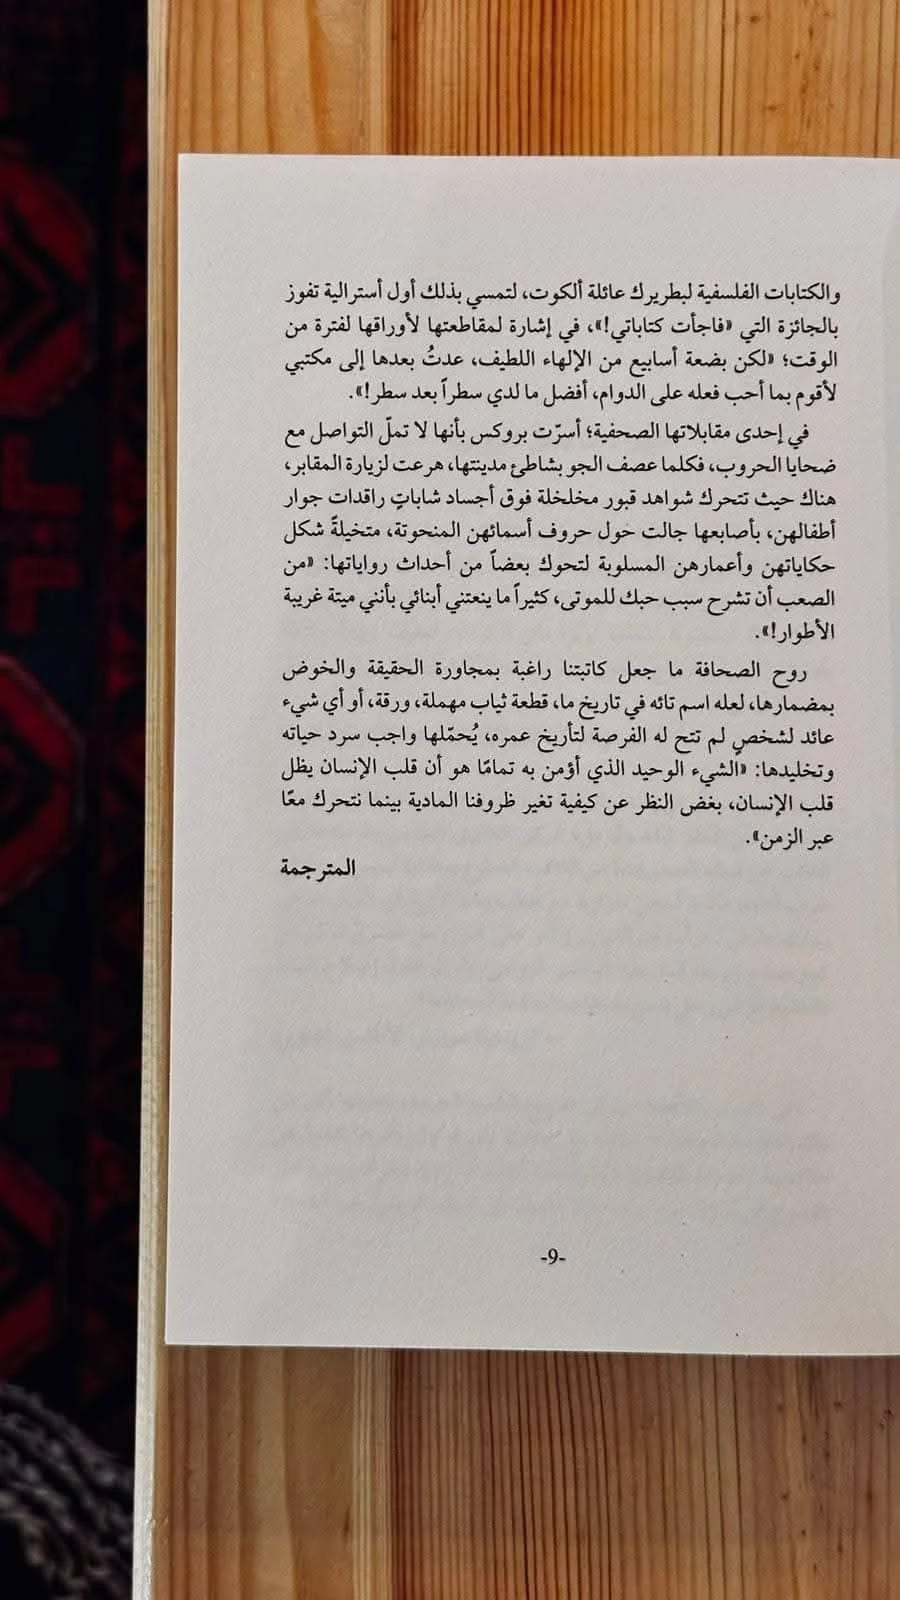 والكتابات الفلسفية لبطريرك عائلة ألكوت، لتمسي بذلك أول أسترالية تفوز
بالجائزة التي «فاجأت كتاباتي!»، في إشارة لمقاطعتها لأوراقها لفترة من
الوقت؛ «لكن بضعة أسابيع من الإلهاء اللطيف، عدتُ بعدها إلى مكتبي
لأقوم بما أحب فعله على الدوام، أفضل ما لدي سطراً بعد سطر!».
في إحدى مقابلاتها الصحفية؛ أسرّت بروكس بأنها لا تملّ التواصل مع
ضحايا الحروب، فكلما عصف الجو بشاطئ مدينتها، هرعت لزيارة المقابر،
هناك حيث تتحرك شواهد قبور مخلخلة فوق أجساد شاباتٍ راقدات جوار
أطفالهن، بأصابعها جالت حول حروف أسمائهن المنحوتة، متخيلةً شكل
حكاياتهن وأعمارهن المسلوبة لتحوك بعضاً من أحداث رواياتها: «من
الصعب أن تشرح سبب حبك للموتى، كثيراً ما ينعتني أبنائي بأنني ميتة غريبة
الأطوار!».
روح الصحافة ما جعل كاتبتنا راغبة بمجاورة الحقيقة والخوض
بمضمارها، لعله اسم تائه في تاريخ ما، قطعة ثياب مهملة، ورقة، أو أي شيء
عائد لشخصٍ لم تتح له الفرصة لتأريخ عمره، يُحمّلها واجب سرد حياته
وتخليدها: «الشيء الوحيد الذي أؤمن به تمامًا هو أن قلب الإنسان يظل
قلب الإنسان، بغض النظر عن كيفية تغير ظروفنا المادية بينما نتحرك معًا
عبر الزمن».
المترجمة
-9-